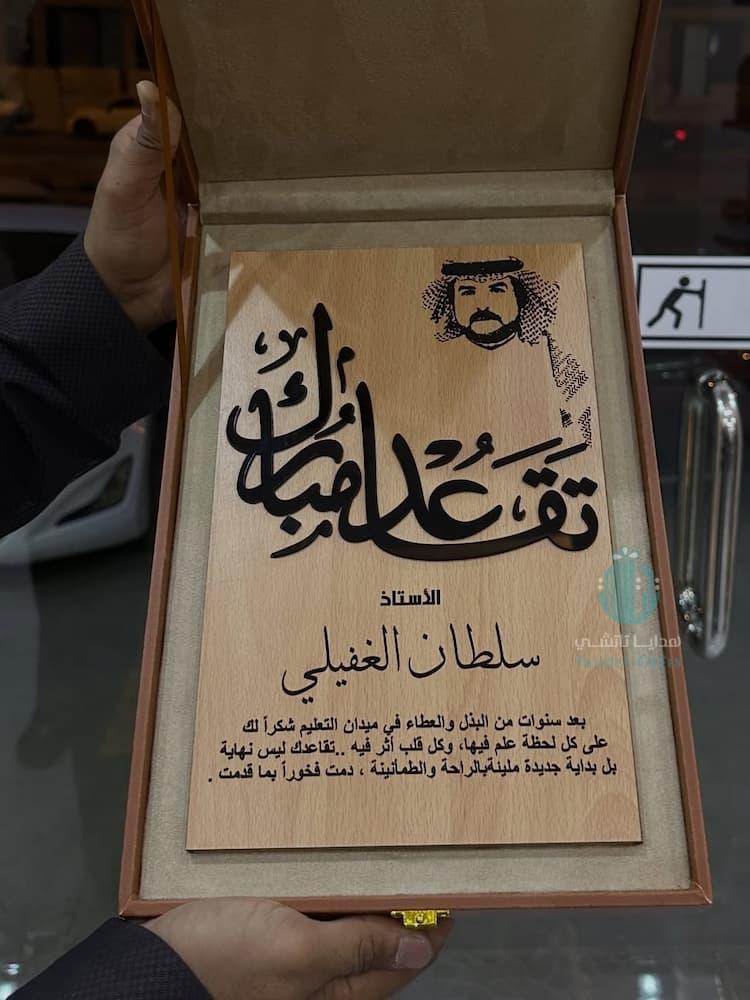 تقاعدا مباركا
الأستاذ
سلطان الغفيلي
بعد سنوات من البذل والعطاء في ميدان التعليم شكراً لك
على كل لحظة علم فيها، وكل قلب أثر فيه ..تقاعدك ليس نهاية
بل بداية جديدة مليئةبالراحة والطمأنينة ، دمت فخوراً بما قدمت .
هدايا تاتشي